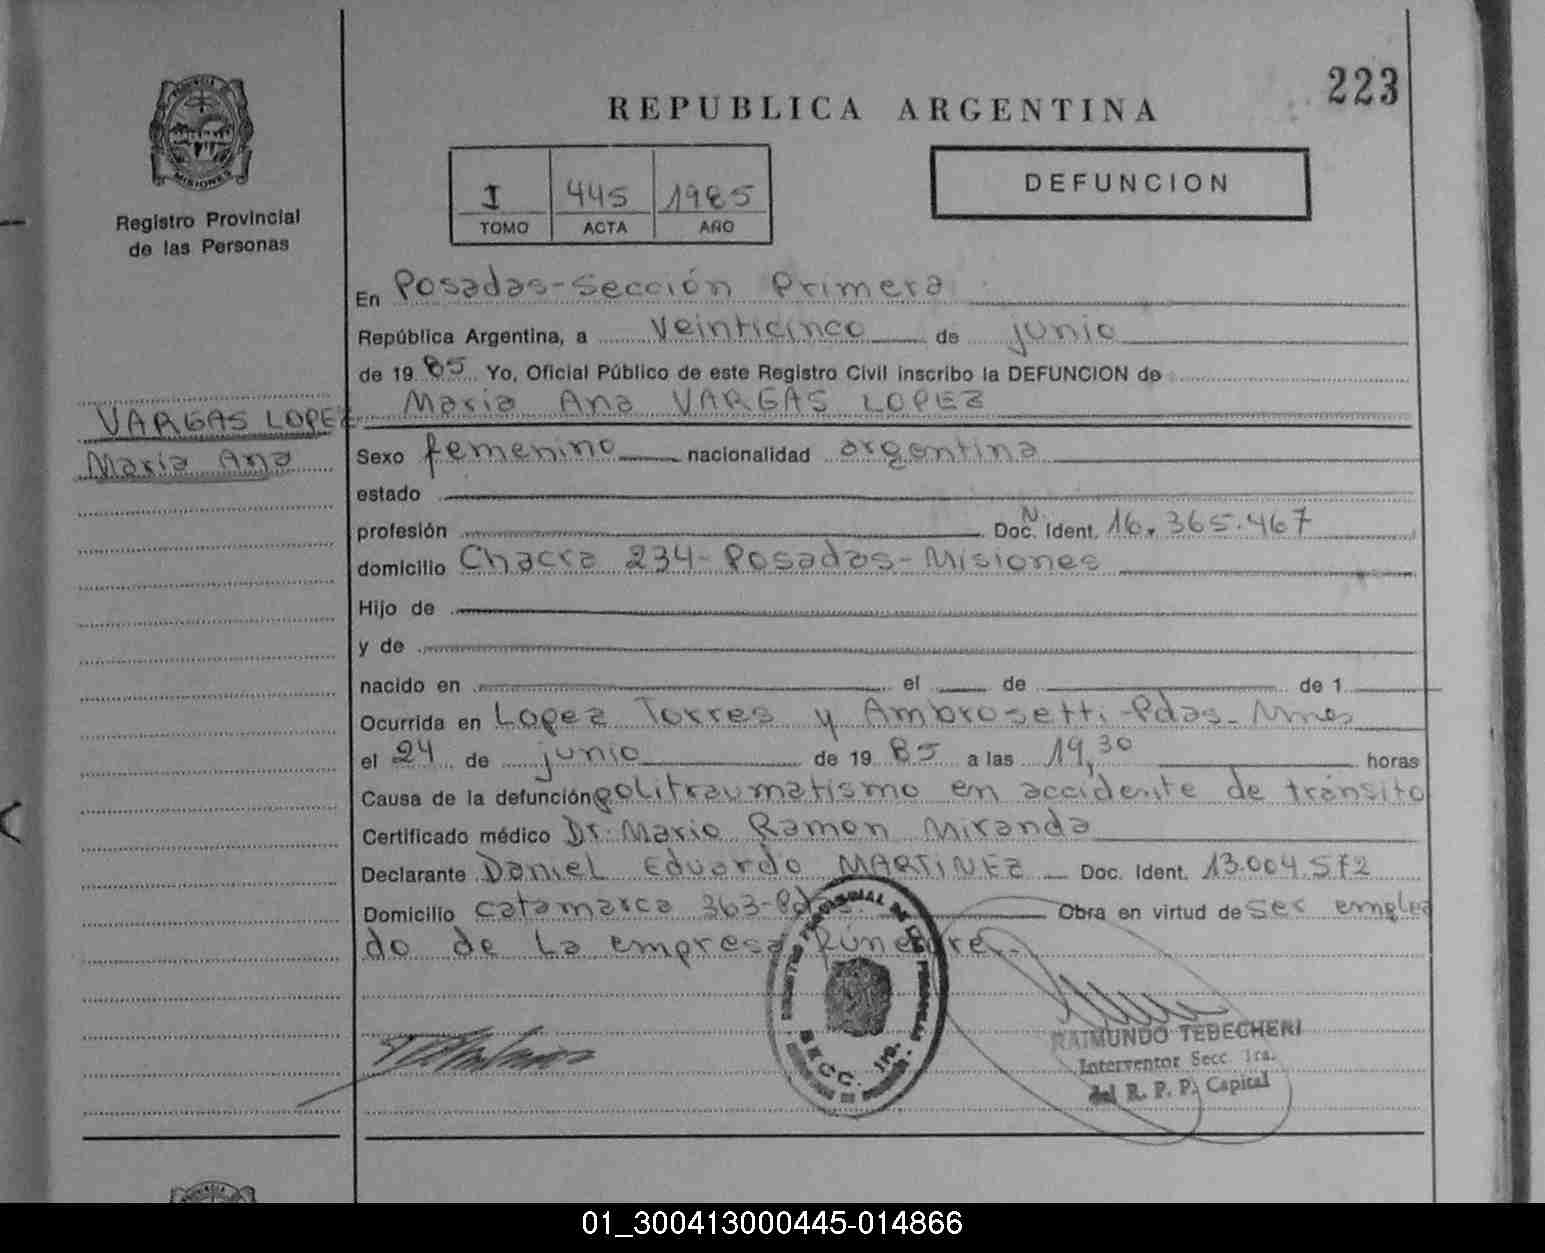 223
REPUBLICA ARGENTINA
MISIONES
Registro Provincial
de las Personas
I 445 1985
TOMO ACTA AÑO
DEFUNCION
En Posadas-Sección Primera
República Argentina, a veinticinco de junio
de 19 85 Yo, Oficial Público de este Registro Civil inscribo la DEFUNCION de
Maria Ana VARGAS LOPEZ
VARGAS LOPEZ
Maria Ana
Sexo femenino nacionalidad argentina
estado
profesión Doc. N. Ident. 16.365.467
domicilio Chacra 234-Posadas-Misiones
Hijo de
y de
nacido en el de de 1
Ocurrida en Lopez Torres y Ambrosetti-Pdas-Mnes
el 24 de junio de 19 85 a las 19,30 horas
Causa de la defunción politraumatismo en accidente de tránsito
Certificado médico Dr. Mario Ramon Miranda
Declarante Daniel Eduardo MARTINEZ Doc. Ident. 13.004.572
Domicilio Catamarca 363-Pdas. Obra en virtud de ser emplea
do de la empresa Fúnebre.
SECC. 1ra.
RAIMUNDO TEBECHERI
Interventor Secc 1ra.
del R. P. P. Capital
01_300413000445-014866